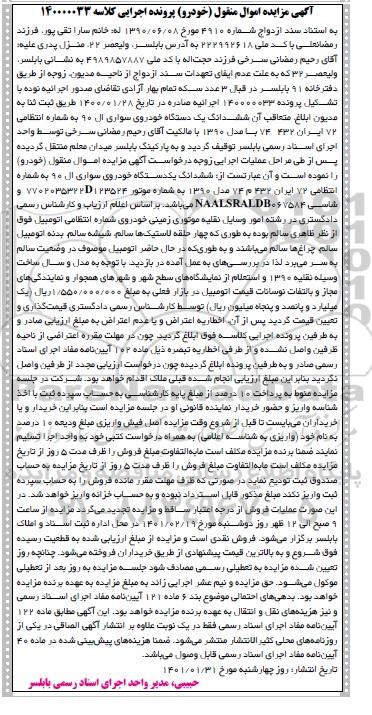 آگهی مزایده اموال منقول (خودرو) پرونده اجرایی کلاسه ۱۴۰۰۰۰۰۳۳
به استناد سند ازدواج شماره ۴۹۱۰ مورخ ۱۳۹۰/۰۶/۰۸ له: خانم سارا تقی پور. فرزند
رمضانعلی با کد ملی ۲۲۲۹۹۲۶۱۸ به آدرس بابلسر. ولیعصر ۲۲. منزل پدری علیه:
آقای رحیم رمضانی سرخی فرزند حجت‌اله با کد ملی ۴۹۸۹۸۵۷۸۸۷ به نشانی بابلسر.
ولیعصر ۳۲ که به علت عدم ایفای تعهدات سند ازدواج از ناحیه مدیون. زوجه از طریق
دفترخانه ۹۱ بابلسر در قبال ۳ عدد سکه تمام بهار آزادی تقاضای صدور اجرائیه نموده با
تشکیل پرونده ۱۴۰۰۰۰۰۳۳ اجرائیه صادره در تاریخ ۱۴۰۰/۰۱/۲۸ طریق ثبت ثنا به
مدیون ابلاغ. متعاقب آن ششدانگ یک دستگاه خودروی سواری ال ۹۰ به شماره انتظامی
۷۲ ایران ۴۳۲ ۷۴ با مدل ۱۳۹۰ با مالکیت آقای رحیم رمضانی سرخی توسط واحد
اجرای اسناد رسمی بابلسر توقیف گردید و به پارکینگ بابلسر میدان معلم منتقل گردیده
پس از طی مراحل عملیات اجرایی زوجه درخواست آگهی مزایده اموال منقول (خودرو)
را نموده است و آن عبارت از: ششدانگ یکدستگاه خودروی سواری ال ۹۰ به شماره
انتظامی ۷۲ ایران ۴۳۲ م ۷۴ مدل ۱۳۹۰ به شماره موتور D۱۲۳۵۲۴ ۷۷۰۲۰۳۵۳۲۲ و
شاسی NAALSRALDB۰۶۷۵۸۴ می‌باشد. بر اساس اعلام ارزیاب و کارشناس رسمی
دادگستری در رشته امور وسایل نقلیه موتوری زمینی خودروی شماره انتظامی اتومبیل فوق
از نظر ظاهری سالم بوده به طوری که چهار حلقه لاستیک‌ها سالم. شیشه سالم. بدنه اتومبیل
سالم. چراغ‌ها سالم می‌باشند و به طوری‌که در حال حاضر اتومبیل موصوف در وضعیت سالم
به سر می‌برد لذا در بررسی‌های به عمل آمده در بازدید. با توجه به مدل و سال ساخت
وسیله نقلیه ۱۳۹۰ و استعلام از نمایشگاه‌های سطح شهر و شهرهای همجوار و نمایندگی‌های
مجاز و بالتفات نوسانات قیمت اتومبیل در بازار فعلی به مبلغ ۱/۵۵۰/۰۰۰/۰۰۰ ریال (یک
میلیارد و پانصد و پنجاه میلیون ریال) توسط کارشناس رسمی دادگستری قیمت‌گذاری و
تعیین قیمت گردید پس از آن. اخطاریه اعتراض و یا عدم اعتراض به مبلغ ارزیابی صادر و
به طرفین پرونده اجرایی کلاسه فوق ابلاغ گردید. چون در مهلت مقرره اعتراضی از ناحیه
طرفین واصل نشده و از طرفی اخطاریه تبصره ذیل ماده ۱۰۲ آیین‌نامه مفاد اجرای اسناد
رسمی صادر و به طرفین پرونده ابلاغ گردیده چون درخواست ارزیابی مجدد از طرفین واصل
نگردید بنابر این مبلغ ارزیابی انجام شده قبلی ملاک اقدام خواهد بود. شرکت در جلسه
مزایده منوط به پرداخت ۱۰ درصد از مبلغ پایه کارشناسی به حساب سپرده ثبت با اخذ
شناسه واریز و حضور خریدار نماینده قانونی او در جلسه مزایده است بنابراین خریدار و یا
خریداران می‌بایست تا قبل از شروع وقت مزایده اصل فیش واریزی مبلغ ودیعه ۱۰ درصد
به نام خود (واریزی به شناسه اعلامی) به همراه درخواست کتبی خود به واحد اجرا تسلیم
نمایند ضمنا برنده مزایده مکلف است مابه‌التفاوت مبلغ فروش را ظرف مدت ۵ روز از تاریخ
مزایده مکلف است مابه‌التفاوت مبلغ فروش را ظرف مدت ۵ روز از تاریخ مزایده به حساب
صندوق ثبت تودیع نماید در صورتی که ظرف مهلت مقرر مانده فروش را به حساب سپرده
ثبت واریز نکند مبلغ مذکور قابل استرداد نبوده و به حساب خزانه واریز خواهد شد. در
این صورت عملیات فروش از درجه اعتبار ساقط و مزایده تجدید می‌گردد مزایده از ساعت
۹ صبح الی ۱۲ ظهر روز دوشنبه مورخ ۱۴۰۱/۰۲/۱۹ در محل اداره ثبت اسناد و املاک
بابلسر برگزار می‌شود. فروش نقدی است و مزایده از مبلغ ارزیابی شده به قطعیت رسیده
فوق شروع و به بالاترین قیمت پیشنهادی از طریق خریداران فروخته می‌شود. چنانچه روز
تعیین شده مزایده به تعطیلی رسمی مصادف شود جلسه مزایده به روز بعد از تعطیلی
موکول می‌شود. حق مزایده و نیم عشر اجرایی زائد به مبلغ مزایده به عهده برنده مزایده
خواهد بود. بدهی‌های احتمالی موضوع بند ۶ ماده ۱۲۱ آیین‌نامه مفاد اجرای اسناد رسمی
و نیز هزینه‌های نقل و انتقال به عهده برنده مزایده خواهد بود. این آگهی مطابق ماده ۱۲۲
آیین‌نامه مفاد اجرای اسناد رسمی فقط در یک نوبت علاوه بر انتشار آگهی الصاقی در یکی از
روزنامه‌های محلی کثیرالانتشار منتشر می‌شود. ضمنا هزینه‌های پیش‌بینی شده در ماده ۴۰
آیین‌نامه مفاد اجرای اسناد رسمی قابل وصول می‌باشد.
تاریخ انتشار: روز چهارشنبه مورخ ۱۴۰۱/۰۱/۳۱
حبیبی، مدیر واحد اجرای اسناد رسمی بابلسر